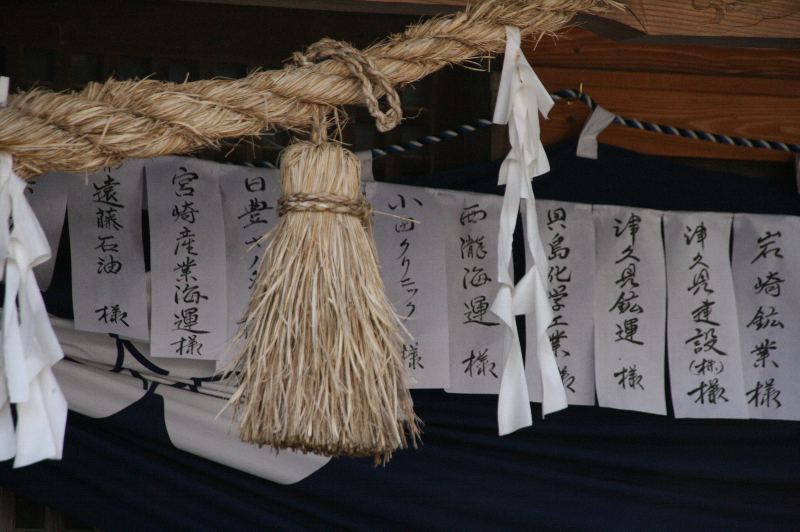 岩崎鉱業 様
津久見建設(株) 様
津久見鉱運 様
貝島化学工業 様
西瀧海運 様
小田クリニック 様
日豊
宮崎産業海運 様
遠藤石油 様